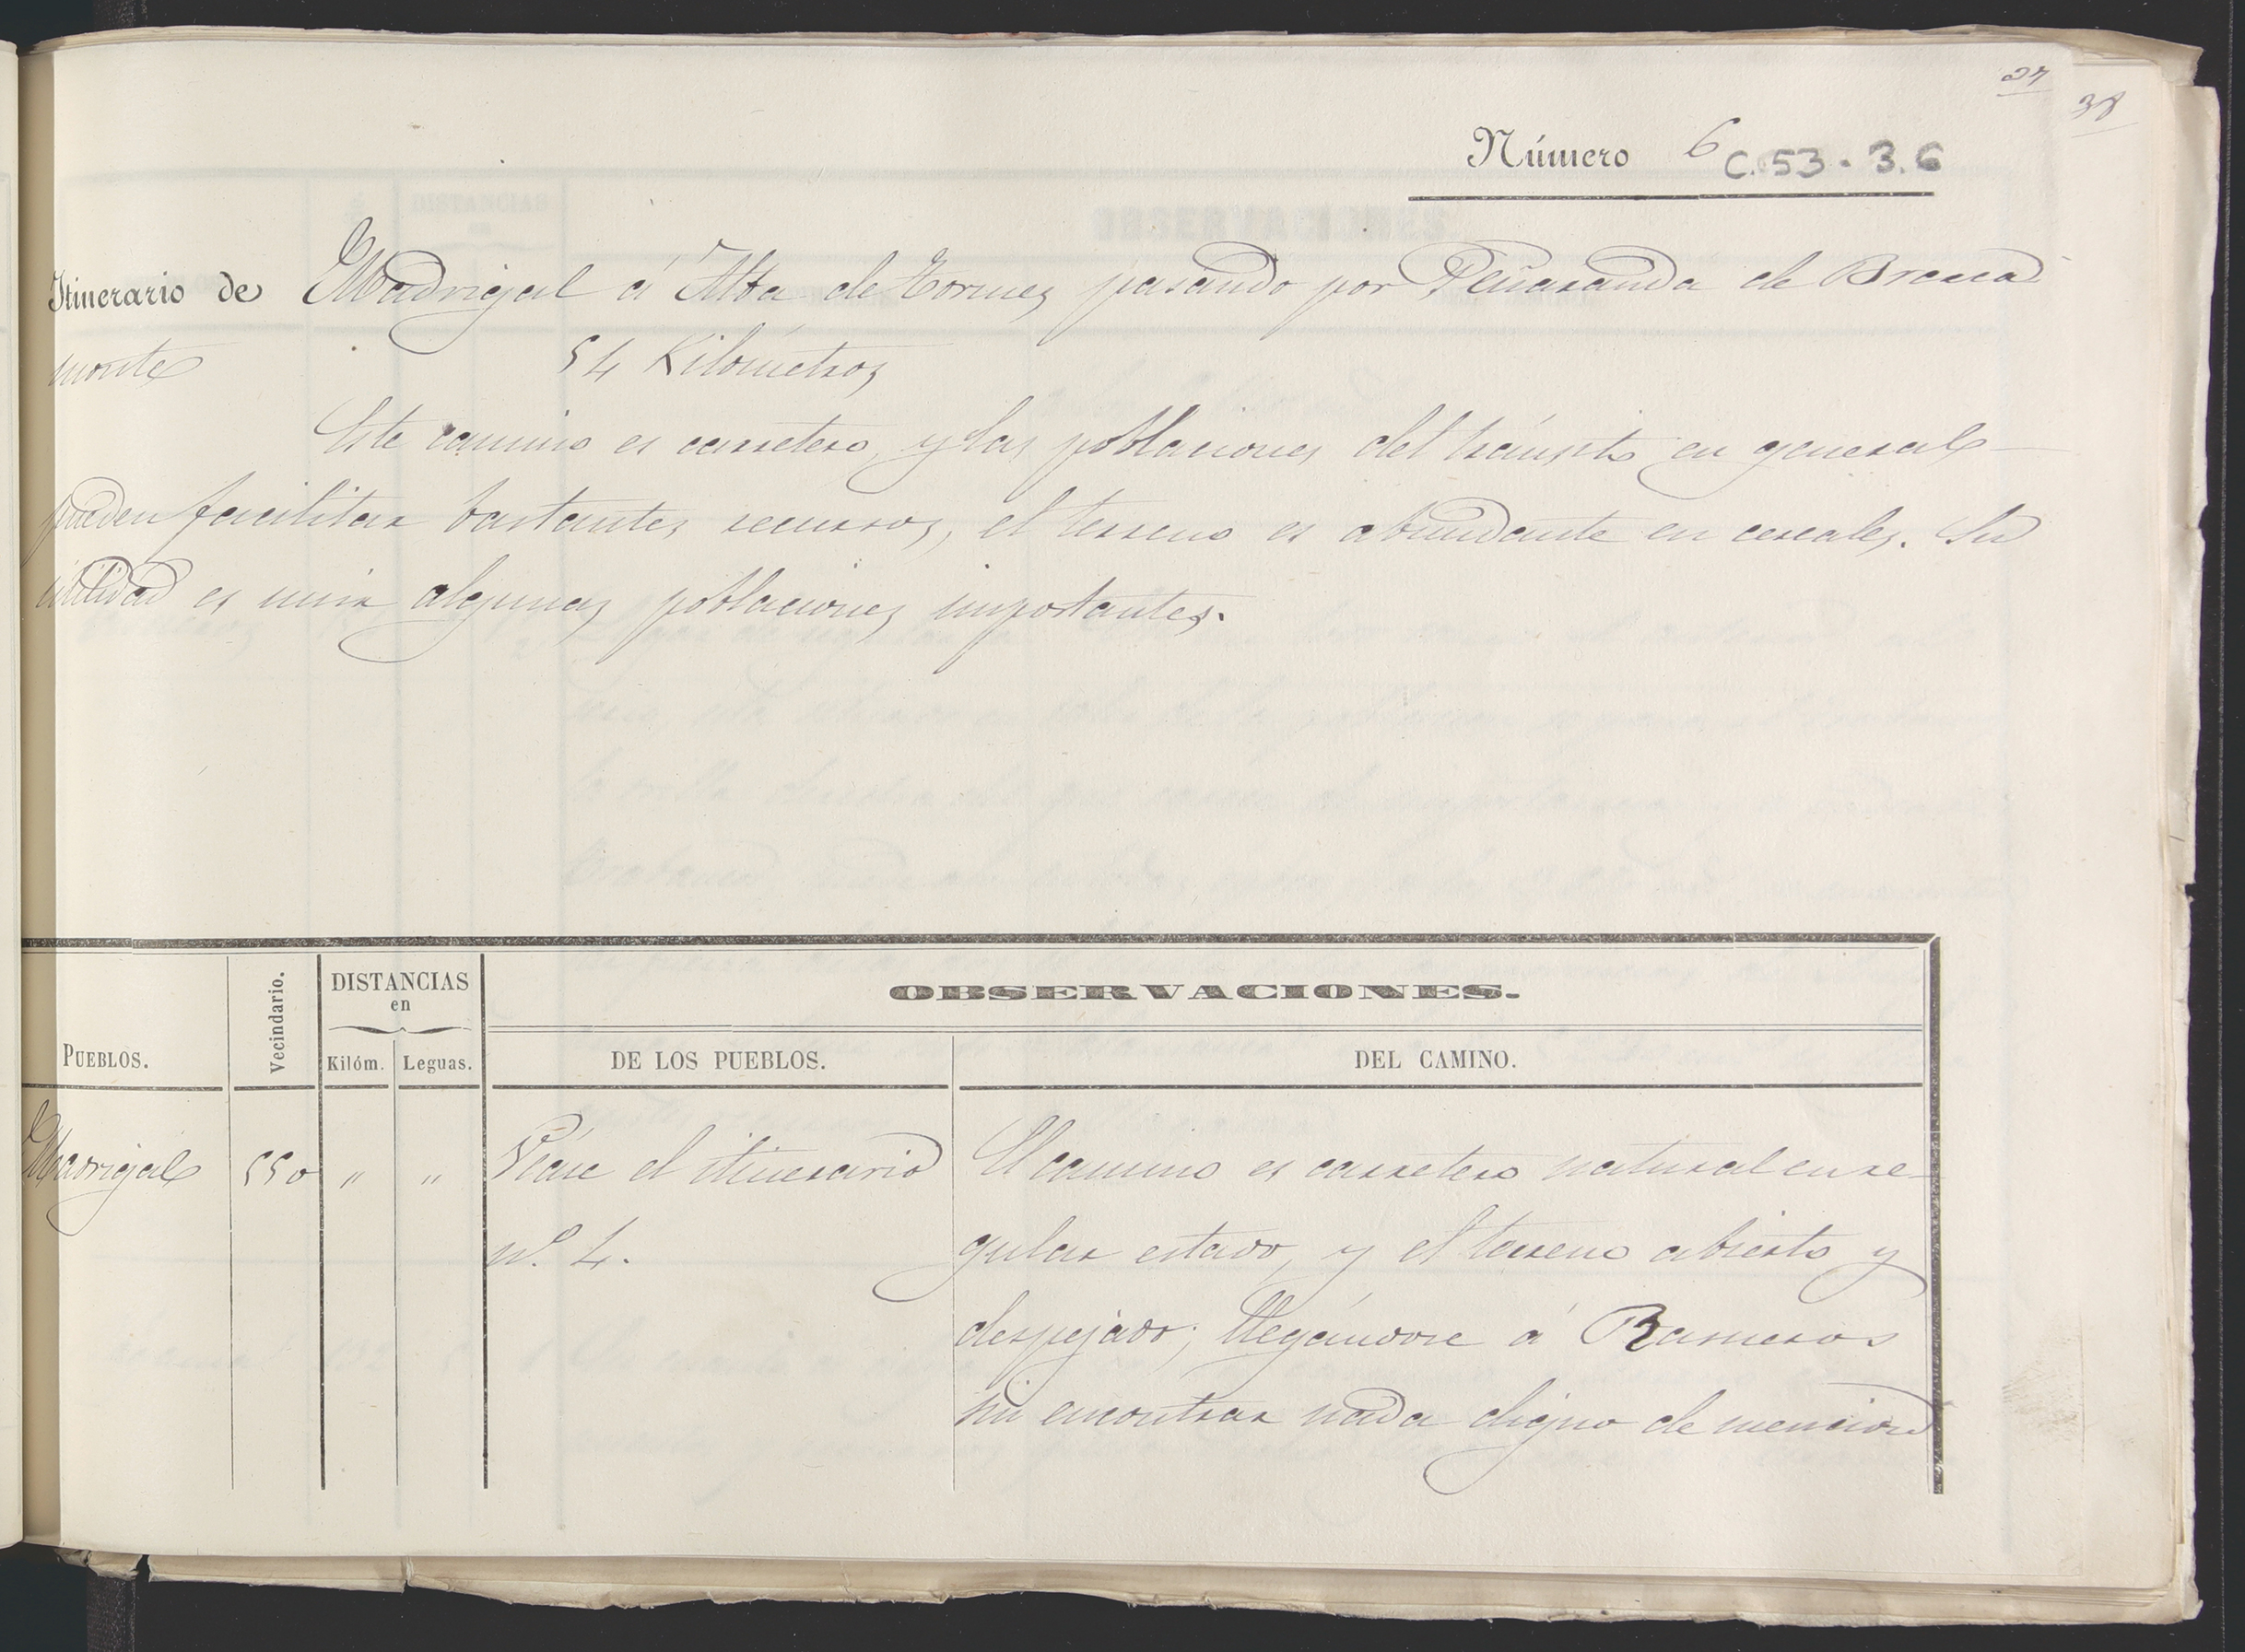 27
38
Número 6 C. 53 - 3. 6
Itinerario de Madrigal á Alba de Tormes pasando por Peñaranda de Braca
monte 54 Kilómetros
Este camino es carretero, y las poblaciones del tránsito en general
pueden facilitar bastantes recursos, el terreno es abundante en cereales. Su
utilidad es unir algunas poblaciones importantes.
PUEBLOS.
Vecindario.
DISTANCIAS
en
Kilóm. Leguas.
OBSERVACIONES.
DE LOS PUEBLOS. DEL CAMINO.
Madrigal 550 " " Véase el itinerario El camino es carretero natural en re-
nº. 4. gular estado, y el terreno abierto y
despejado; llegándose á Rameros
sin encontrar nada digno de mencion